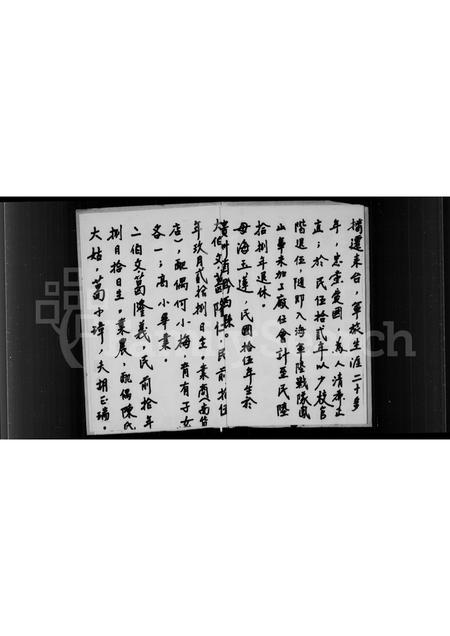 撥還來台，軍旅生涯二十多
年，忠黨愛國，為人清廉正
直；於民伍拾貳年以少校官
階退伍，隨即入海軍陸戰隊鳳
山車未加工廠任會計至民陸
拾捌年退休。
母海玉蓮，民國拾伍年生於
貴州
大伯父葛隆仁，民前拾伍
年玖月貳拾捌日生。業商(南貨
店)，配偶何小梅，育有子女
各一；高小畢業。
二伯父葛隆義，民前拾年
捌月拾日生。業農，配偶陳氏
大姑，葛小瑋，夫胡正瑞。
FamilySearch